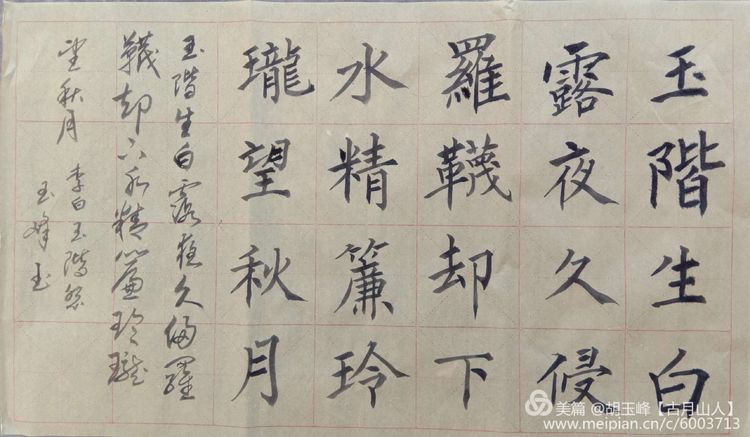 玉階生白
露夜久侵
羅韈却下
水精簾玲
瓏望秋月
玉階生白露夜久侵羅
韈却下水精簾玲瓏
望秋月 李白玉階怨
玉峰玉
美篇 @胡玉峰【古月山人】
www.meipian.cn/c/6003713